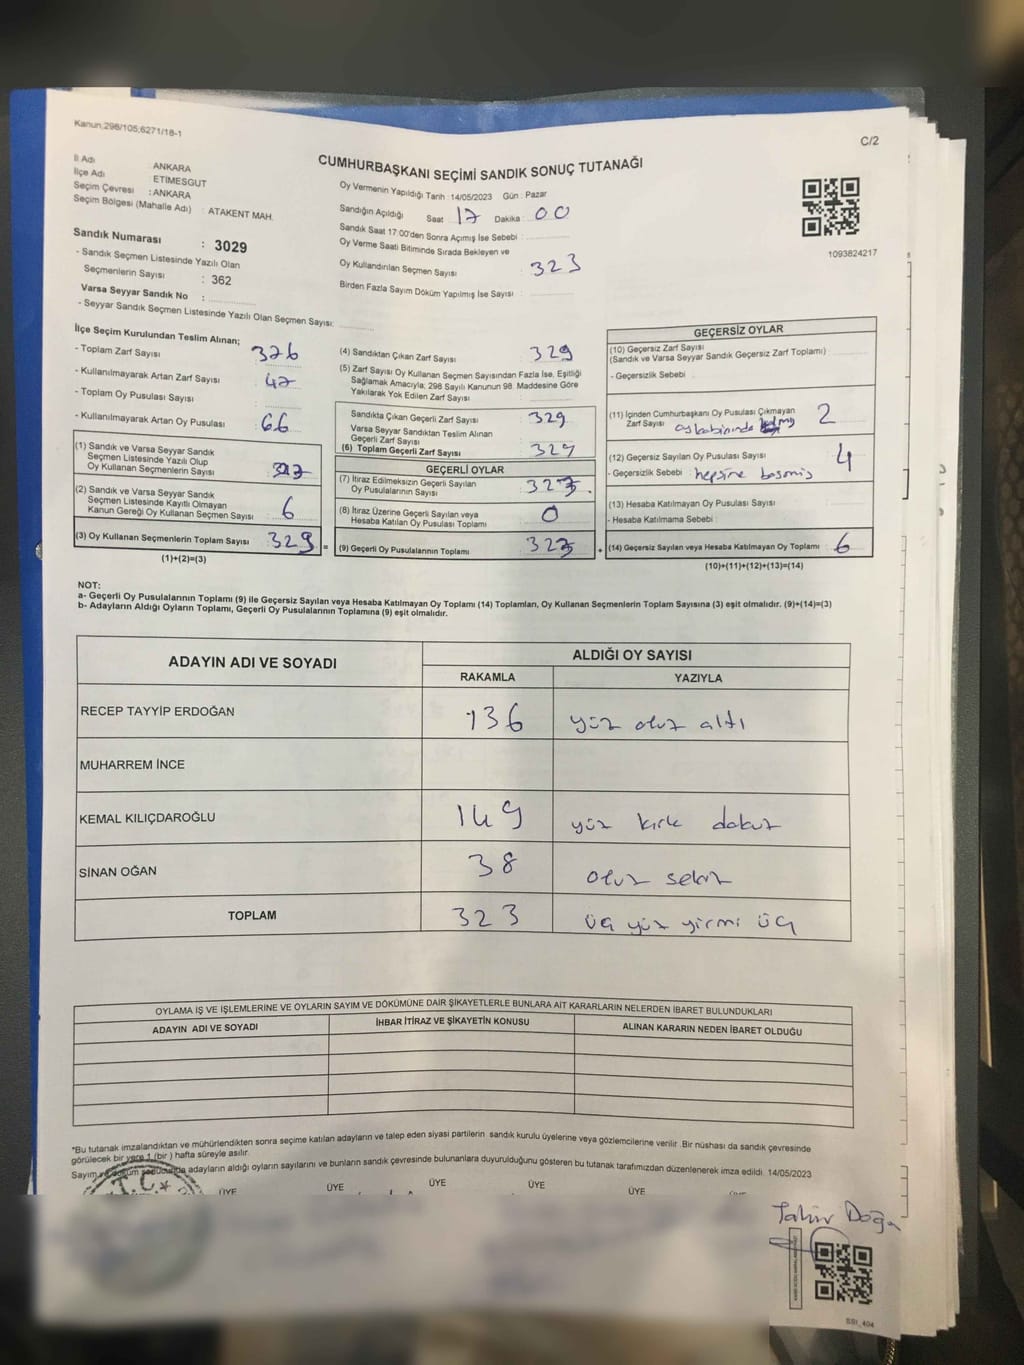 Kanun:298/105;6271/18-1
C/2
CUMHURBAŞKANI SEÇİMİ SANDIK SONUÇ TUTANAĞI
İl Adı : ANKARA
İlçe Adı : ETİMESGUT
Seçim Çevresi : ANKARA
Seçim Bölgesi (Mahalle Adı) : ATAKENT MAH.
Sandık Numarası : 3029
- Sandık Seçmen Listesinde Yazılı Olan
Seçmenlerin Sayısı : 362
Varsa Seyyar Sandık No :
- Seyyar Sandık Seçmen Listesinde Yazılı Olan Seçmen Sayısı:
Oy Vermenin Yapıldığı Tarih : 14/05/2023 Gün : Pazar
Sandığın Açıldığı Saat : 17 Dakika : 00
Sandık Saat 17:00'den Sonra Açımış İse Sebebi :
Oy Verme Saati Bitiminde Sırada Bekleyen ve
Oy Kullandırılan Seçmen Sayısı : 323
Birden Fazla Sayım Döküm Yapılmış İse Sayısı :
1093824217
İlçe Seçim Kurulundan Teslim Alınan;
- Toplam Zarf Sayısı : 376
- Kullanılmayarak Artan Zarf Sayısı : 47
- Toplam Oy Pusulası Sayısı :
- Kullanılmayarak Artan Oy Pusulası : 66
(1) Sandık ve Varsa Seyyar Sandık
Seçmen Listesinde Yazılı Olup
Oy Kullanan Seçmenlerin Sayısı : 323
(2) Sandık ve Varsa Seyyar Sandık
Seçmen Listesinde Kayıtlı Olmayan
Kanun Gereği Oy Kullanan Seçmen Sayısı : 6
(3) Oy Kullanan Seçmenlerin Toplam Sayısı : 329 =
(1)+(2)=(3)
(4) Sandıktan Çıkan Zarf Sayısı : 329
(5) Zarf Sayısı Oy Kullanan Seçmen Sayısından Fazla İse, Eşitliği
Sağlamak Amacıyla; 298 Sayılı Kanunun 98. Maddesine Göre
Yakılarak Yok Edilen Zarf Sayısı :
Sandıkta Çıkan Geçerli Zarf Sayısı : 329
Varsa Seyyar Sandıktan Teslim Alınan
Geçerli Zarf Sayısı :
(6) Toplam Geçerli Zarf Sayısı : 329
GEÇERLİ OYLAR
(7) İtiraz Edilmeksizin Geçerli Sayılan
Oy Pusulalarının Sayısı : 323
(8) İtiraz Üzerine Geçerli Sayılan veya
Hesaba Katılan Oy Pusulası Toplamı : 0
(9) Geçerli Oy Pusulalarının Toplamı : 323 +
GEÇERSİZ OYLAR
(10) Geçersiz Zarf Sayısı
(Sandık ve Varsa Seyyar Sandık Geçersiz Zarf Toplamı) :
- Geçersizlik Sebebi :
(11) İçinden Cumhurbaşkanı Oy Pusulası Çıkmayan
Zarf Sayısı : oy kabininde 2
(12) Geçersiz Sayılan Oy Pusulası Sayısı : 4
- Geçersizlik Sebebi : hepsine basmış
(13) Hesaba Katılmayan Oy Pusulası Sayısı :
- Hesaba Katılmama Sebebi :
(14) Geçersiz Sayılan veya Hesaba Katılmayan Oy Toplamı : 6
(10)+(11)+(12)+(13)=(14)
NOT:
a- Geçerli Oy Pusulalarının Toplamı (9) ile Geçersiz Sayılan veya Hesaba Katılmayan Oy Toplamı (14) Toplamları, Oy Kullanan Seçmenlerin Toplam Sayısına (3) eşit olmalıdır. (9)+(14)=(3)
b- Adayların Aldığı Oyların Toplamı, Geçerli Oy Pusulalarının Toplamına (9) eşit olmalıdır.
ADAYIN ADI VE SOYADI ALDIĞI OY SAYISI
RAKAMLA YAZIYLA
RECEP TAYYİP ERDOĞAN 136 yüz otuz altı
MUHARREM İNCE
KEMAL KILIÇDAROĞLU 149 yüz kırk dokuz
SİNAN OĞAN 38 otuz sekiz
TOPLAM 323 üç yüz yirmi üç
OYLAMA İŞ VE İŞLEMLERİNE VE OYLARIN SAYIM VE DÖKÜMÜNE DAİR ŞİKAYETLERLE BUNLARA AİT KARARLARIN NELERDEN İBARET BULUNDUKLARI
ADAYIN ADI VE SOYADI İHBAR İTİRAZ VE ŞİKAYETİN KONUSU ALINAN KARARIN NEDEN İBARET OLDUĞU
*Bu tutanak imzalandıktan ve mühürlendikten sonra seçime katılan adayların ve talep eden siyasi partilerin sandık kurulu üyelerine veya gözlemcilerine verilir .Bir nüshası da sandık çevresinde
görülecek bir yere 1 (bir ) hafta süreyle asılır.
Sayım ve döküm sonucunda adayların aldığı oyların sayılarını ve bunların sandık çevresinde bulunanlara duyurulduğunu gösteren bu tutanak tarafımızdan düzenlenerek imza edildi. 14/05/2023
T.C.
ÜYE ÜYE ÜYE ÜYE ÜYE
Tahir Doğa
SSI_404